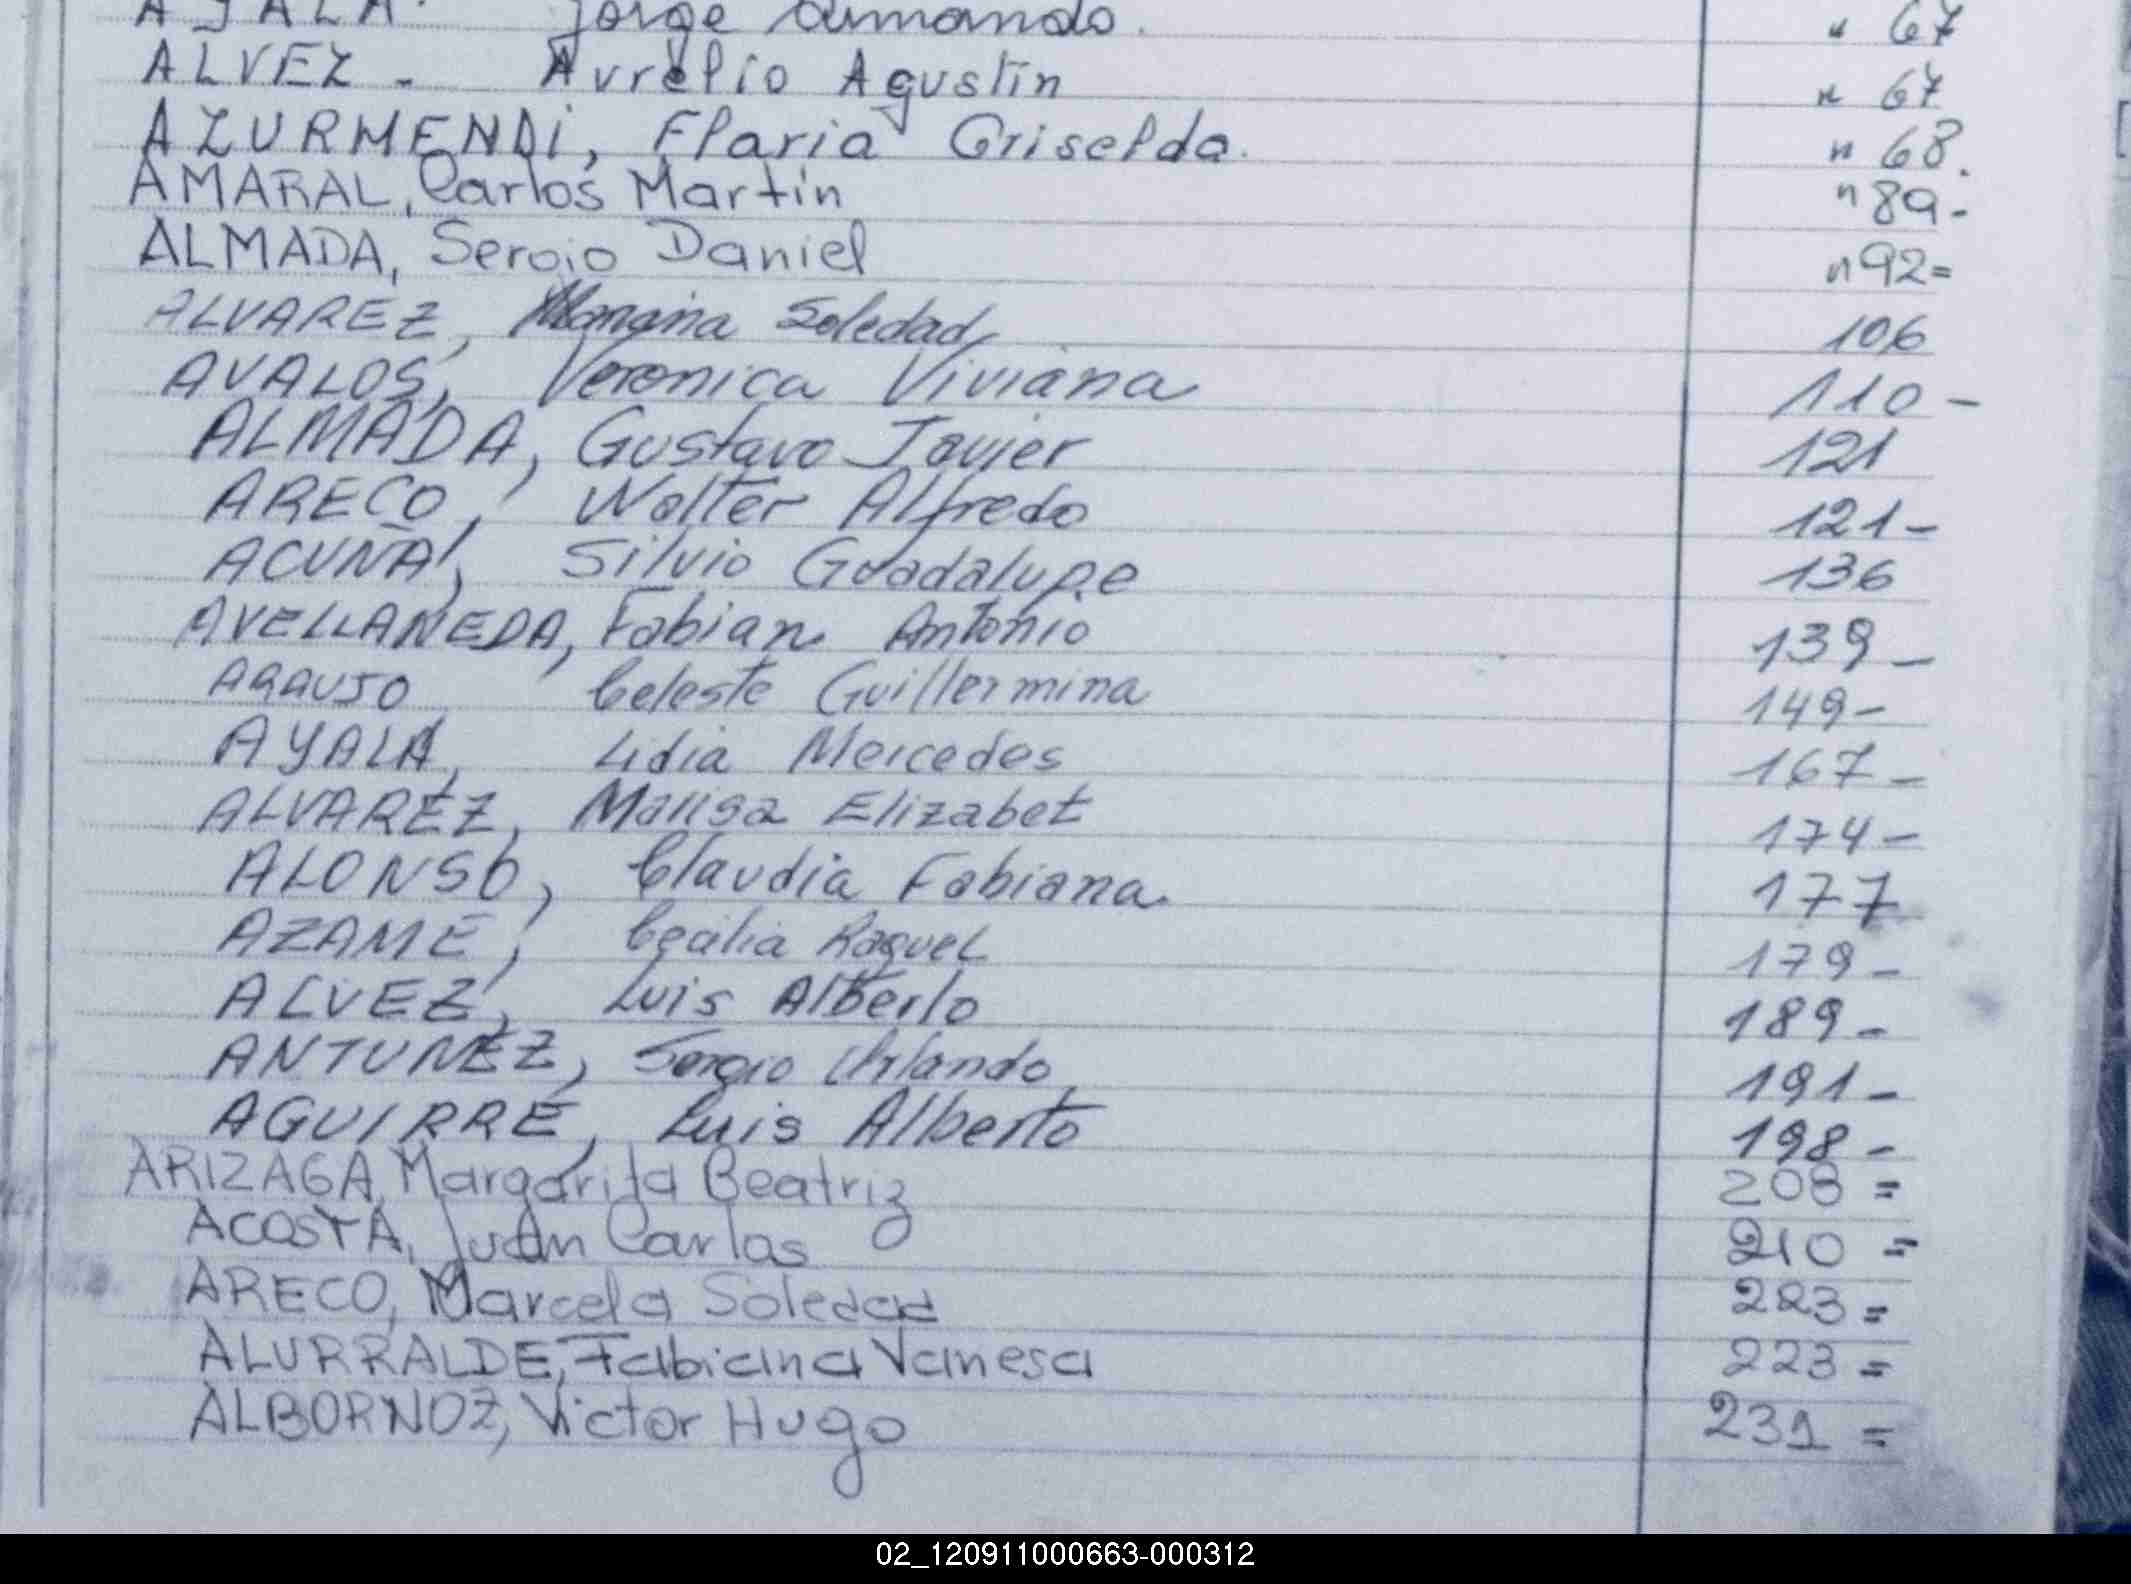 AYALA. Jorge Armando. " 67
ALVEZ - Aurelio Agustin " 67
AZURMENDI, Flaria Griselda. " 68.
AMARAL, Carlos Martín " 89-
ALMADA, Sergio Daniel " 92=
ALVAREZ, Soledad 106
AVALOS, Veronica Viviana 110-
ALMADA, Gustavo Javier 121
ARECO, Walter Alfredo 121-
ACUÑA, Silvio Guadalupe 136
AVELLANEDA, Fabian Antonio 139-
ARAUJO Celeste Guillermina 149-
AYALA, Lidia Mercedes 167-
ALVAREZ, Marisa Elizabet 174-
ALONSO, Claudia Fabiana. 177
AZAME, Cecilia Raquel 179-
ALVEZ, Luis Alberto 189-
ANTUNEZ, Sergio Orlando, 191-
AGUIRRE, Luis Alberto 198-
ARIZAGA, Margarita Beatriz 208=
ACOSTA, Juan Carlos 210=
ARECO, Marcela Soledad 223=
ALURRALDE, Fabiana Vanesa 223=
ALBORNOZ, Victor Hugo 231=
02_120911000663-000312